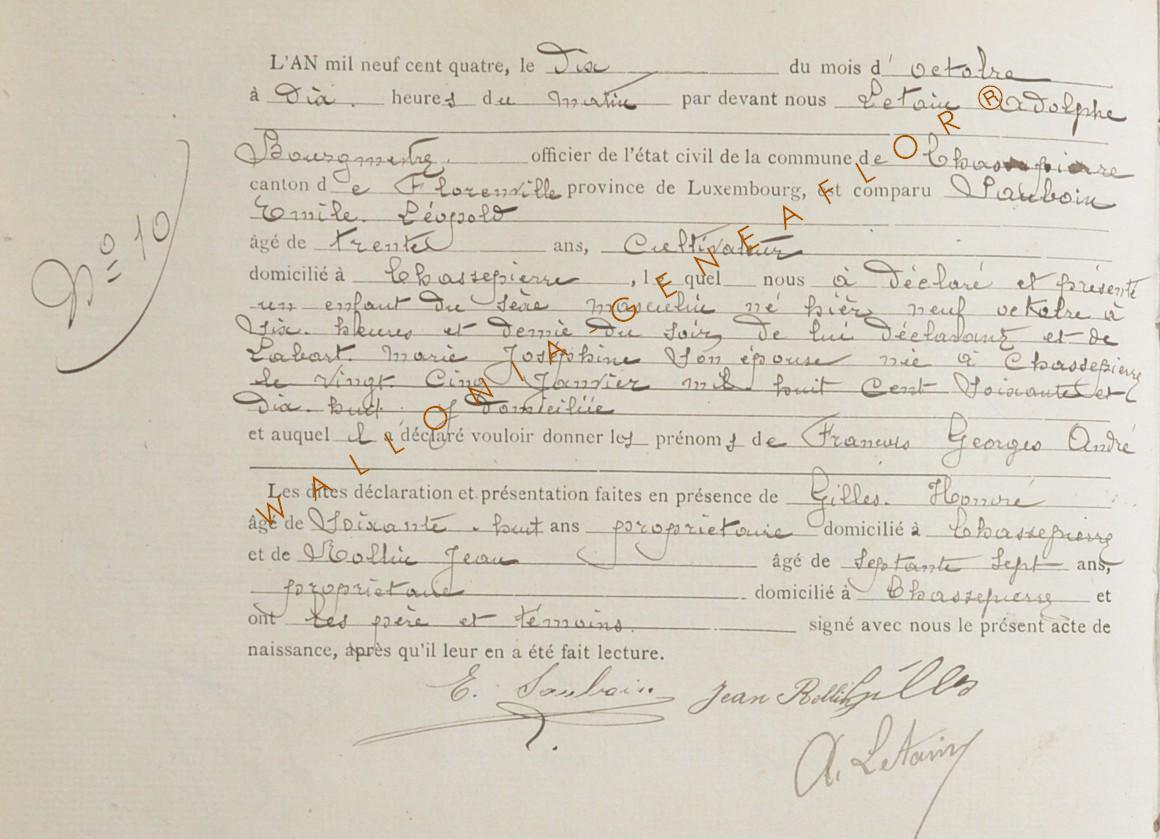 L'AN mil neuf cent quatre, le Dix du mois d' octobre
à Dix heures du matin par devant nous Letain Adolphe
Bourgmestre officier de l'état civil de la commune de Chassepierre
canton de Florenville province de Luxembourg, est comparu Sauboin
Emile Léopold
âgé de trente ans, Cultivateur
domicilié à Chassepierre, lequel nous à déclaré et présenté
un enfant du sèxe masculin né hièr neuf octobre à
Six heures et demie du soir, de lui déclarant et de
Labart Marie Joséphine son épouse née à Chassepierre
le vingt Cinq Janvier mil huit Cent Soixante et
Dix huit y domiciliée
et auquel il a déclaré vouloir donner les prénoms de Francois Georges André
Les dites déclaration et présentation faites en présence de Gilles Honoré
âgé de Soixante huit ans propriétaire domicilié à Chassepierre
et de Rollin Jean âgé de Septante Sept ans,
propriétaire domicilié à Chassepierre et
ont les père et témoins signé avec nous le présent acte de
naissance, après qu'il leur en a été fait lecture.
N° 10
E. Sauboin Jean Rollin Gilles
A. Letain
WALLONIA GENEAFLOR ®